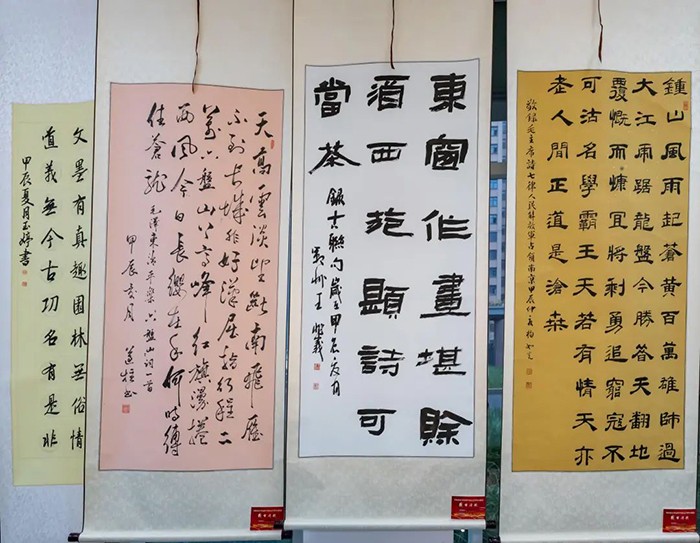 鍾山風雨起蒼黃百萬雄師過
大江虎踞龍盤今勝昔天翻地
覆慨而慷宜將剩勇追窮寇不
可沽名學霸王天若有情天亦
老人間正道是滄桑
敬錄毛主席詩七律人民解放軍占領南京甲辰仲夏
東窗作畫堪賒
酒西苑顯詩可
當茶
錄古聯句歲在甲辰夏月
天高雲淡望斷南飛雁
不到長城非好漢屈指行程二
萬六盤山上高峰紅旗漫捲
西風今日長纓在手何時縛
住蒼龍
毛澤東清平樂六盤山詞一首
甲辰夏月
文墨有真趣園林無俗情
道義無今古功名有是非
甲辰夏月玉婷書